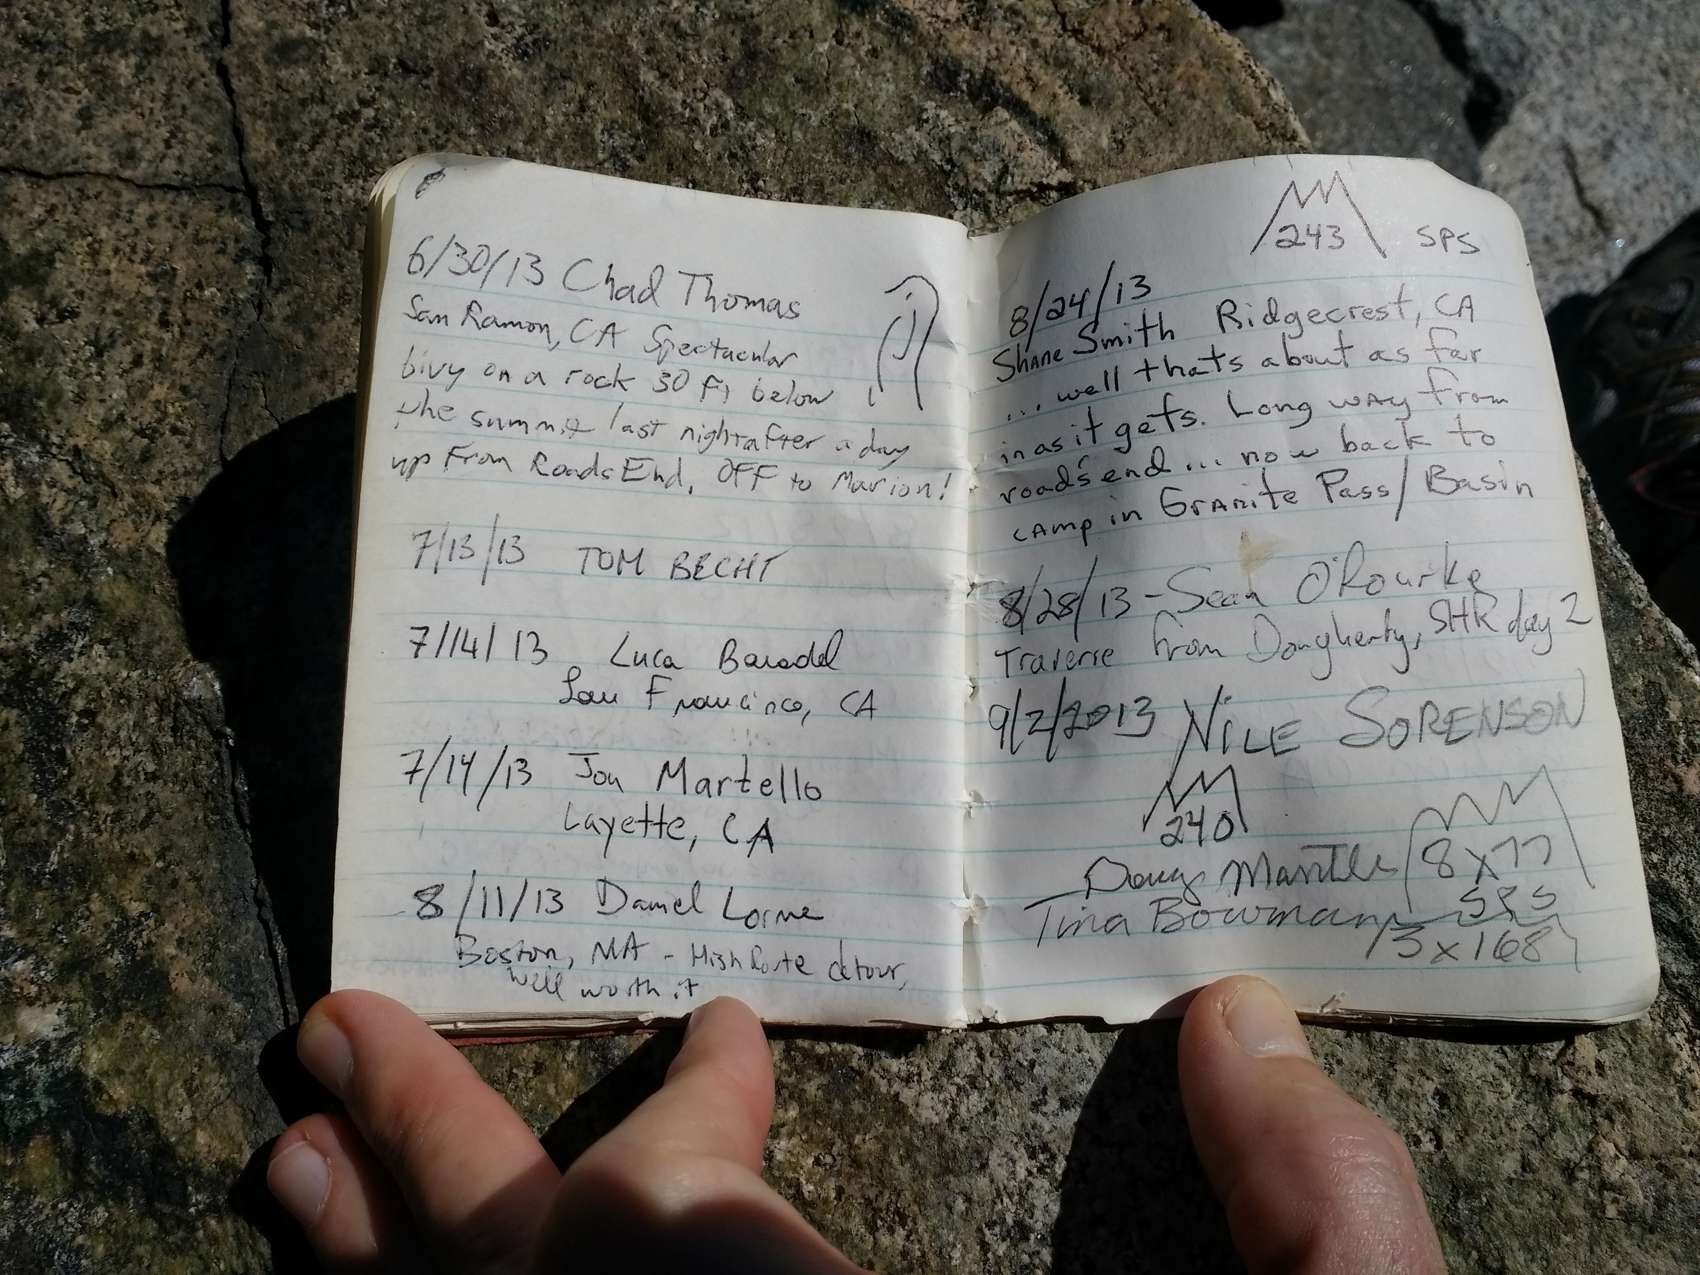 6/30/13 Chad Thomas
San Ramon, CA Spectacular
bivy on a rock 30 Ft below
the summit last night after a day
up From Roads End. OFF to Marion!
7/13/13 TOM BECHT
7/14/13 Luca
San Francisco, CA
7/14/13 Jon Martello
Layette, CA
8/11/13 Daniel Lorme
Boston, MA - High Route detour,
well worth it
243 SPS
8/24/13
Shane Smith Ridgecrest, CA
... well thats about as far
in as it gets. Long way from
road's end... now back to
camp in Granite Pass/Basin
8/28/13 - Sean O'Rourke
Traverse from Dougherty, SHR day 2
9/2/2013 NILE SORENSON
240
Doug Mantle 8x77
SPS
Tina Bowman 3x168